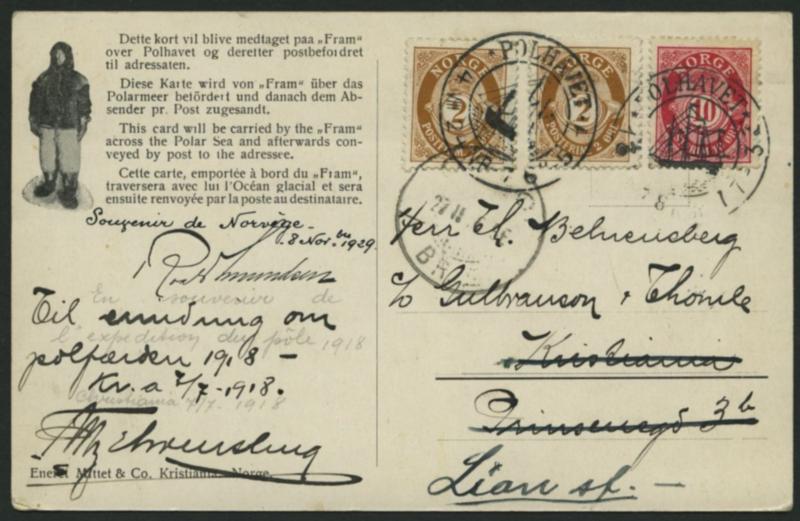 Dette kort vil blive medtaget paa „Fram"
over Polhavet og deretter postbefordret
til adressaten.
Diese Karte wird von „Fram" über das
Polarmeer befördert und danach dem Ab-
sender pr. Post zugesandt.
This card will be carried by the „Fram"
across the Polar Sea and afterwards con-
veyed by post to the adressee.
Cette carte, emportée à bord du „Fram",
traversera avec lui l'Océan glacial et sera
ensuite renvoyée par la poste au destinataire.
Souvenir de Norvège.
8 Novbre 1929.
Roald Amundsen
En souvenir de
Til erindring om
l'expédition du pôle 1918
polfærden 1918 –
Kr.a 7/7-1918.
Christiania 7/7-1918
Eneret Mittet & Co. Kristiania, Norge.
NORGE
2
NORGE
2
NORGE
10
POLHAVET
POLHAVET
Herr Th. Behrensberg
c/o Gulbranson & Thomle
Kristiania
Prinsensgd 3b
Lian st.